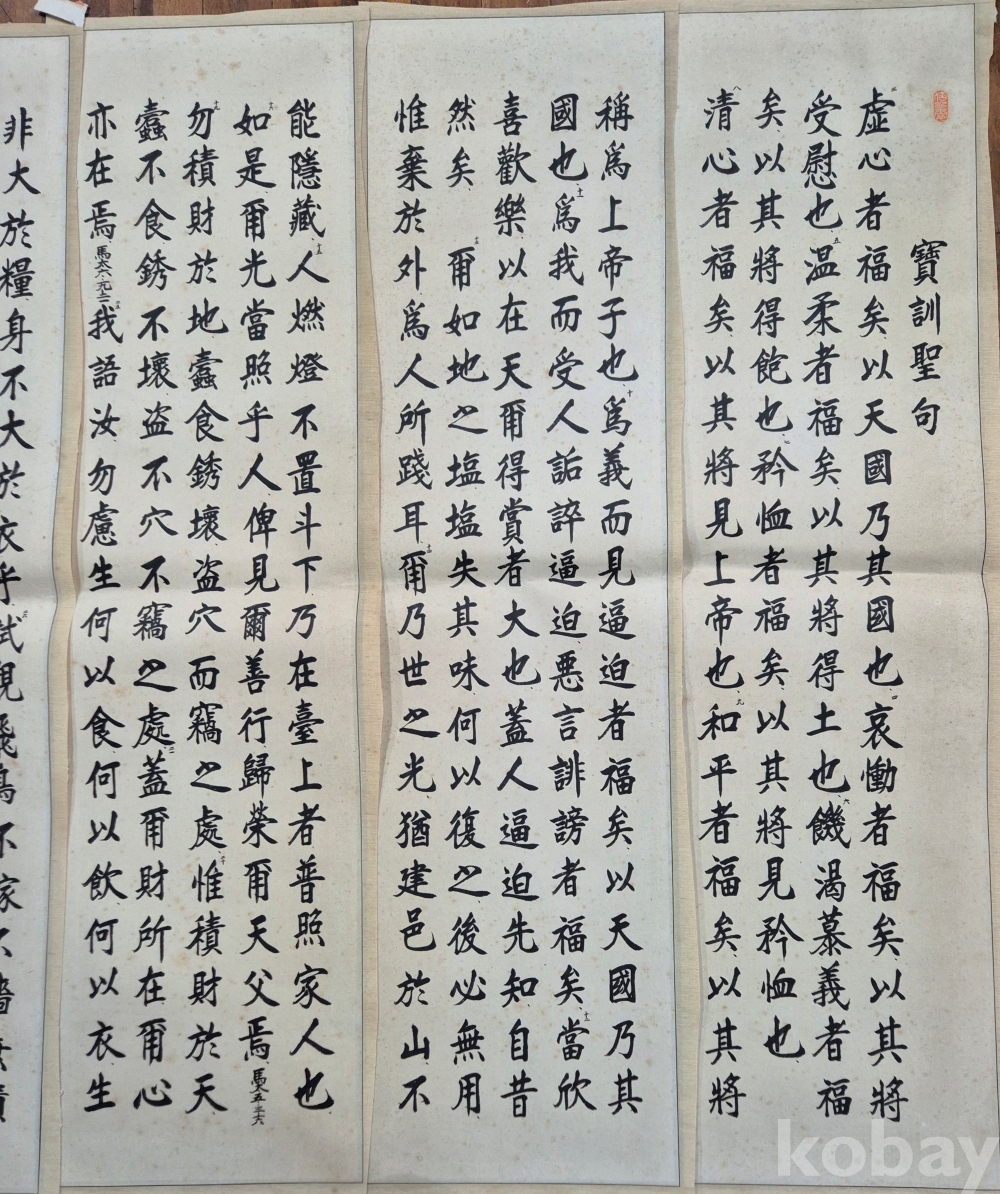 寶訓聖句
虛心者福矣以天國乃其國也四哀慟者福矣以其將
受慰也五温柔者福矣以其將得土也六饑渴慕義者福
矣以其將得飽也七矜恤者福矣以其將見矜恤也
八清心者福矣以其將見上帝也九和平者福矣以其將
稱爲上帝子也十爲義而見逼迫者福矣以天國乃其
國也十一爲我而受人詬誶逼迫惡言誹謗者福矣十二當欣
喜歡樂以在天爾得賞者大也蓋人逼迫先知自昔
然矣 十三爾如地之塩塩失其味何以復之後必無用
惟棄於外爲人所踐耳十四爾乃世之光猶建邑於山不
能隱藏十五人燃燈不置斗下乃在臺上者普照家人也
十六如是爾光當照乎人俾見爾善行歸榮爾天父焉馬太五三六
十九勿積財於地蠹食銹壞盜穴而竊之處二十惟積財於天
蠹不食銹不壞盜不穴不竊之處二一蓋爾財所在爾心
亦在焉馬太六九二一我語汝勿慮生何以食何以飲何以衣生
非大於糧身不大於衣乎試視飛鳥不家不嗇
kobay